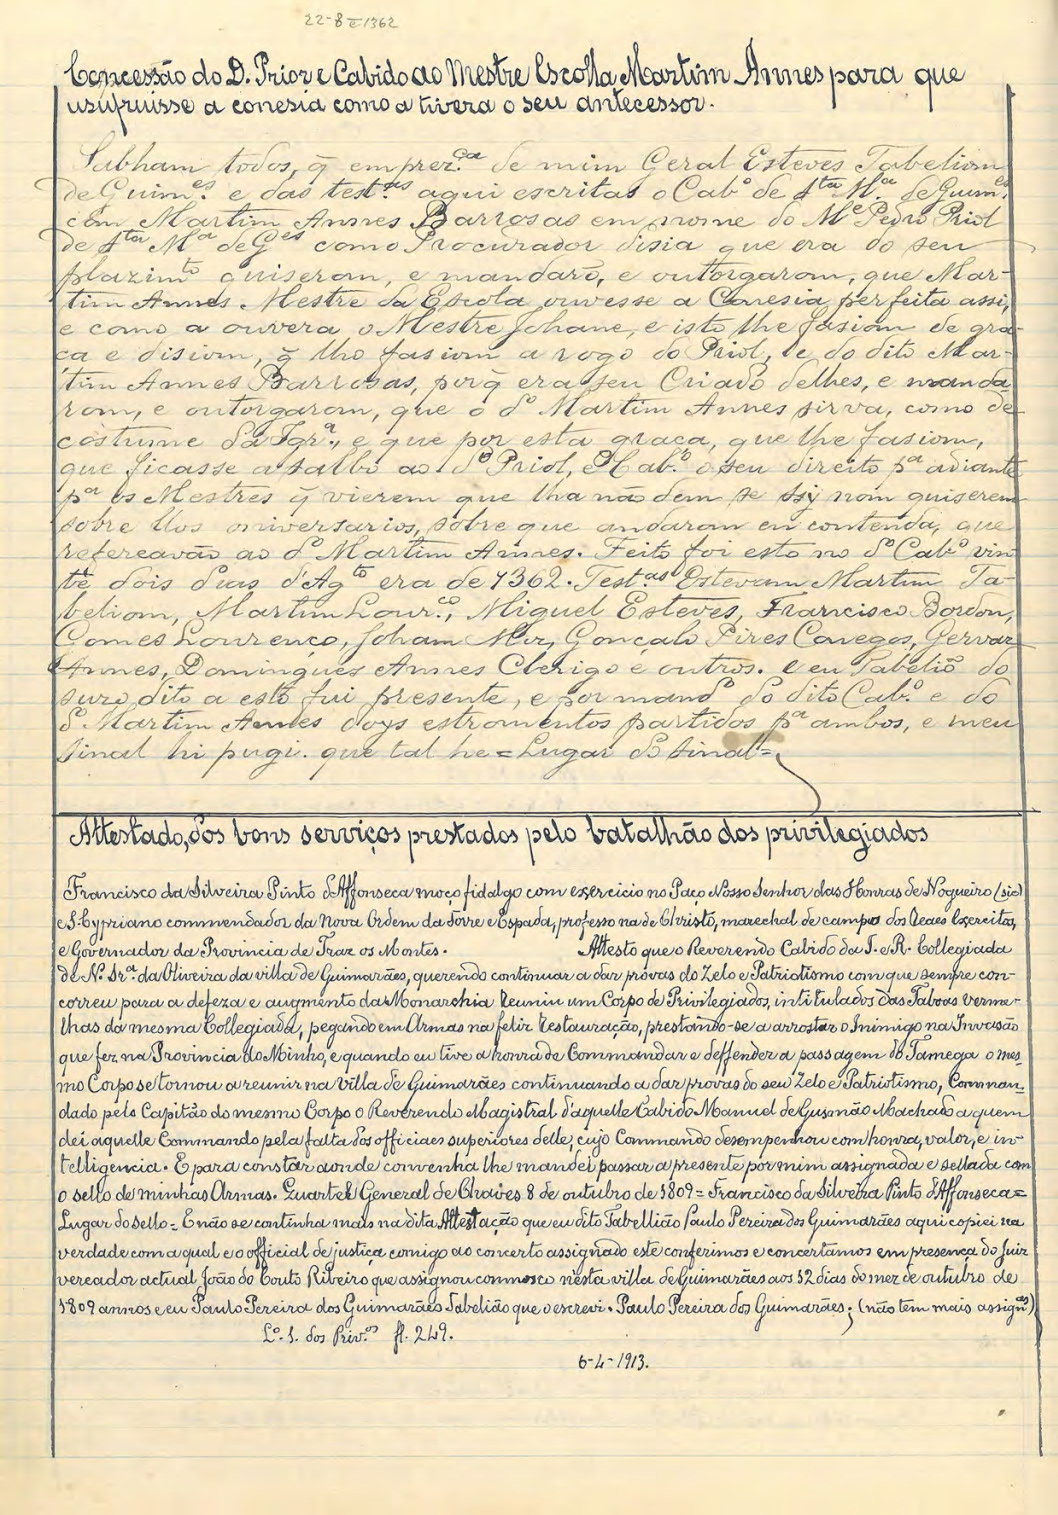 22-8-E-1362
Concessão do D. Prior e Cabido ao Mestre Escolla Martim Annes para que
usufruisse a conesia como a tivera o seu antecessor.
Sabham todos, q̃ em prez.ça de mim Geral Esteves Tabeliom
de Guim.es e das test.as aqui escritas o Cab.o de S.ta M.a de Guim.es
com Martim Annes Barrosas em nome do M.e Pedro Priol
de S.ta M.a de G.es como Procurador disia que era do seu
plazim.to quiserom, e mandarõ, e outorgarom, que Mar-
tim Annes Mestre da Escola ouvesse a Conesia perfeita assi,
e como a ouvera o Mestre Johane, e isto lhe fasiom de gra-
ça e disiom, q̃ lho fasiom a rogo do Priol, e do dito Mar-
tim Annes Barrosas, porq̃ era seu Criado delhes, e manda-
rom, e outorgarom, que o d.o Martim Annes sirva, como de
costume da Igr.a, e que por esta graça, que lhe fasiom,
que ficasse a salbo ao d.o Priol, e Cab.o o seu direito p.a adiante
p.a os Mestres q̃ vierem que lha não dem se nom quiserem
sobre llos oniversarios, sobre que andaram en contenda, que
ao d.o Martim Annes. Feito foi esto no d.o Cab.o vin-
te dois dias d'Ag.to era de 1362. Test.as Estevam Martim Ta-
beliom, Martim Lour.ço, Miguel Esteves, Francisco Bordon,
Gomes Lourenço, Joham Mız, Gonçalo Pires Conegos, Gervaz
Annes, Domingues Annes Clerigo e outros. e eu Tabelio do
suzo dito a esto fui presente, e por mand.o do dito Cab.o e do
d.o Martim Annes doys estromentos partidos p.a ambos, e meu
sinal hi pugi. que tal he = Lugar do sinal =
Attestado, dos bons serviços prestados pelo batalhão dos privilegiados
Francisco da Silveira Pinto d'Affonseca moço fidalgo com exercicio no Paço Nosso Senhor das Honras de Nogueiro (sic)
e S. Cypriano commendador da Nova Ordem da Torre e Espada, professo na de Christo, marechal de campo dos Reaes Exercitos,
e Governador da Provincia de Traz os Montes. Attesto que o Reverendo Cabido da I. e R. Collegiada
de N. Sr.a da Oliveira da villa de Guimarães, querendo continuar a dar próvas do Zelo e Patriotismo com que sempre con-
correu para a defeza e augmento da Monarchia Reuniu um Corpo de Privilegiados, intitulados das Taboas verme-
lhas da mesma Collegiada, pegando em Armas na feliz Restauração, prestando-se a arrostar o Inimigo na Invasão
que fez na Provincia do Minho, e quando eu tive a honra de Commandar e deffender a passagem do Tamega o mes-
mo Corpo se tornou a reunir na Villa de Guimarães continuando a dar provas do seu Zelo e Patriotismo, Comman-
dado pelo Capitão do mesmo Corpo o Reverendo Magistral d'aquelle Cabido Manuel de Gusmão Machado a quem
dei aquelle Commando pela falta dos officiaes superiores delle, cujo Commando desempenhou com honra, valor, e in-
telligencia. E para constar aonde convenha lhe mandei passar a presente por mim assignada e sellada com
o sello de minhas Armas. Quartel General de Chaves 8 de outubro de 1809 = Francisco da Silveira Pinto d'Affonseca =
Lugar do sello = E não se continha mais na dita Attestação que eu dito Tabellião Paulo Pereira dos Guimarães aqui copiei na
verdade com a qual e o official de justiça comigo ao concerto assignado este conferimos e concertamos em presença do Juiz
vereador actual João do Couto Ribeiro que assignou connosco nésta villa de Guimarães aos 12 dias do mez de outubro de
1809 annos e eu Paulo Pereira dos Guimarães Tabelião que o escrevi. Paulo Pereira dos Guimarães; (não tem mais assign.as)
L.o 1. dos Priv.os fl. 249.
6-4-1913.